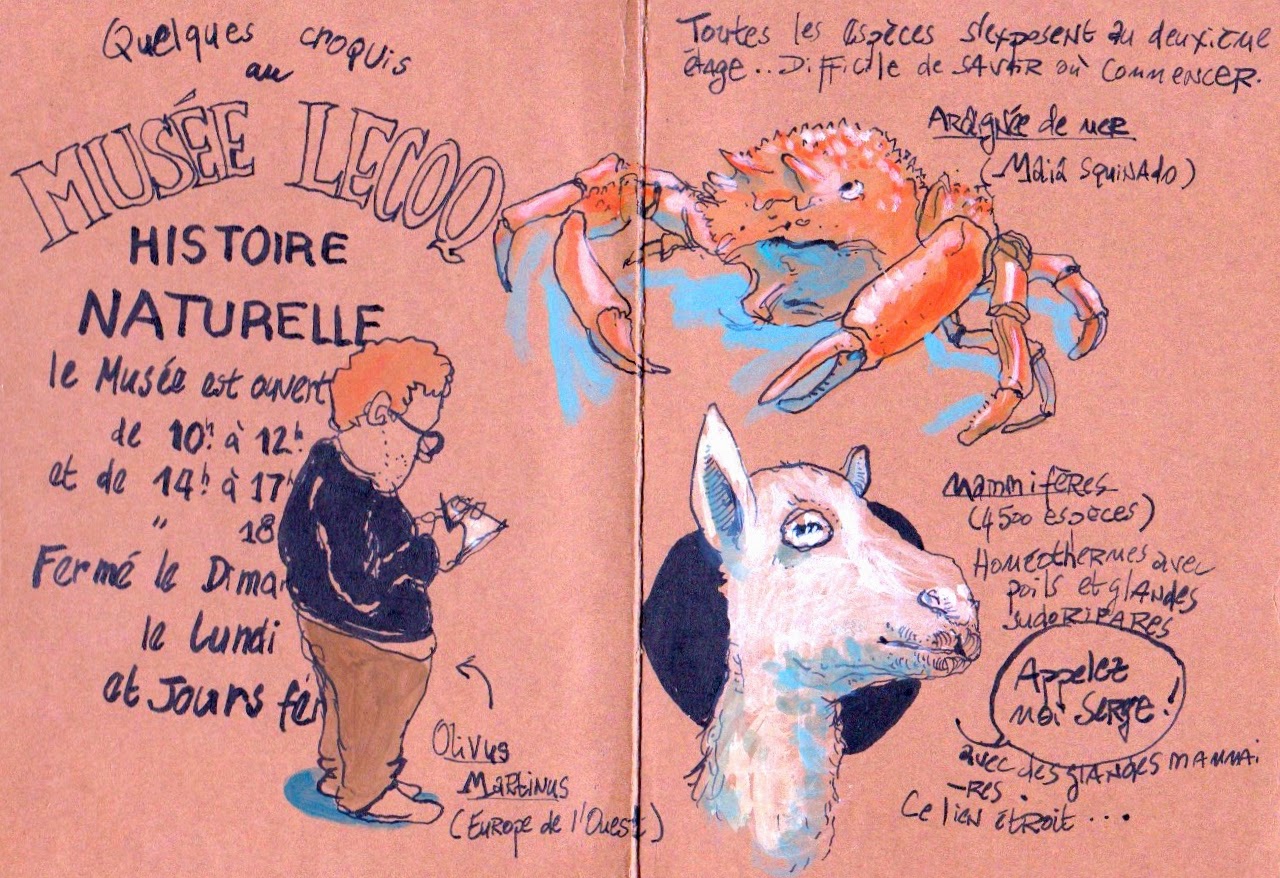 Quelques croquis
au
MUSÉE LECOQ
HISTOIRE
NATURELLE
le Musée est ouvert
de 10h à 12h
et de 14h à 17h
" 18
Fermé le Diman
le Lundi
et Jours fér
Olivus
Martinus
(Europe de l'Ouest)
Toutes les espèces s'exposent au deuxième
étage.. Difficile de SAVOIR où COMMENCER.
ARAignée de MER
(Maïa SquiNAdo)
Mammifères
(4500 espèces)
Homéothermes avec
poils et glANdes
sudoRIPARES
Appelez
moi SERGE!
avec des glANdes mammai
-res.
Ce lien étroit...